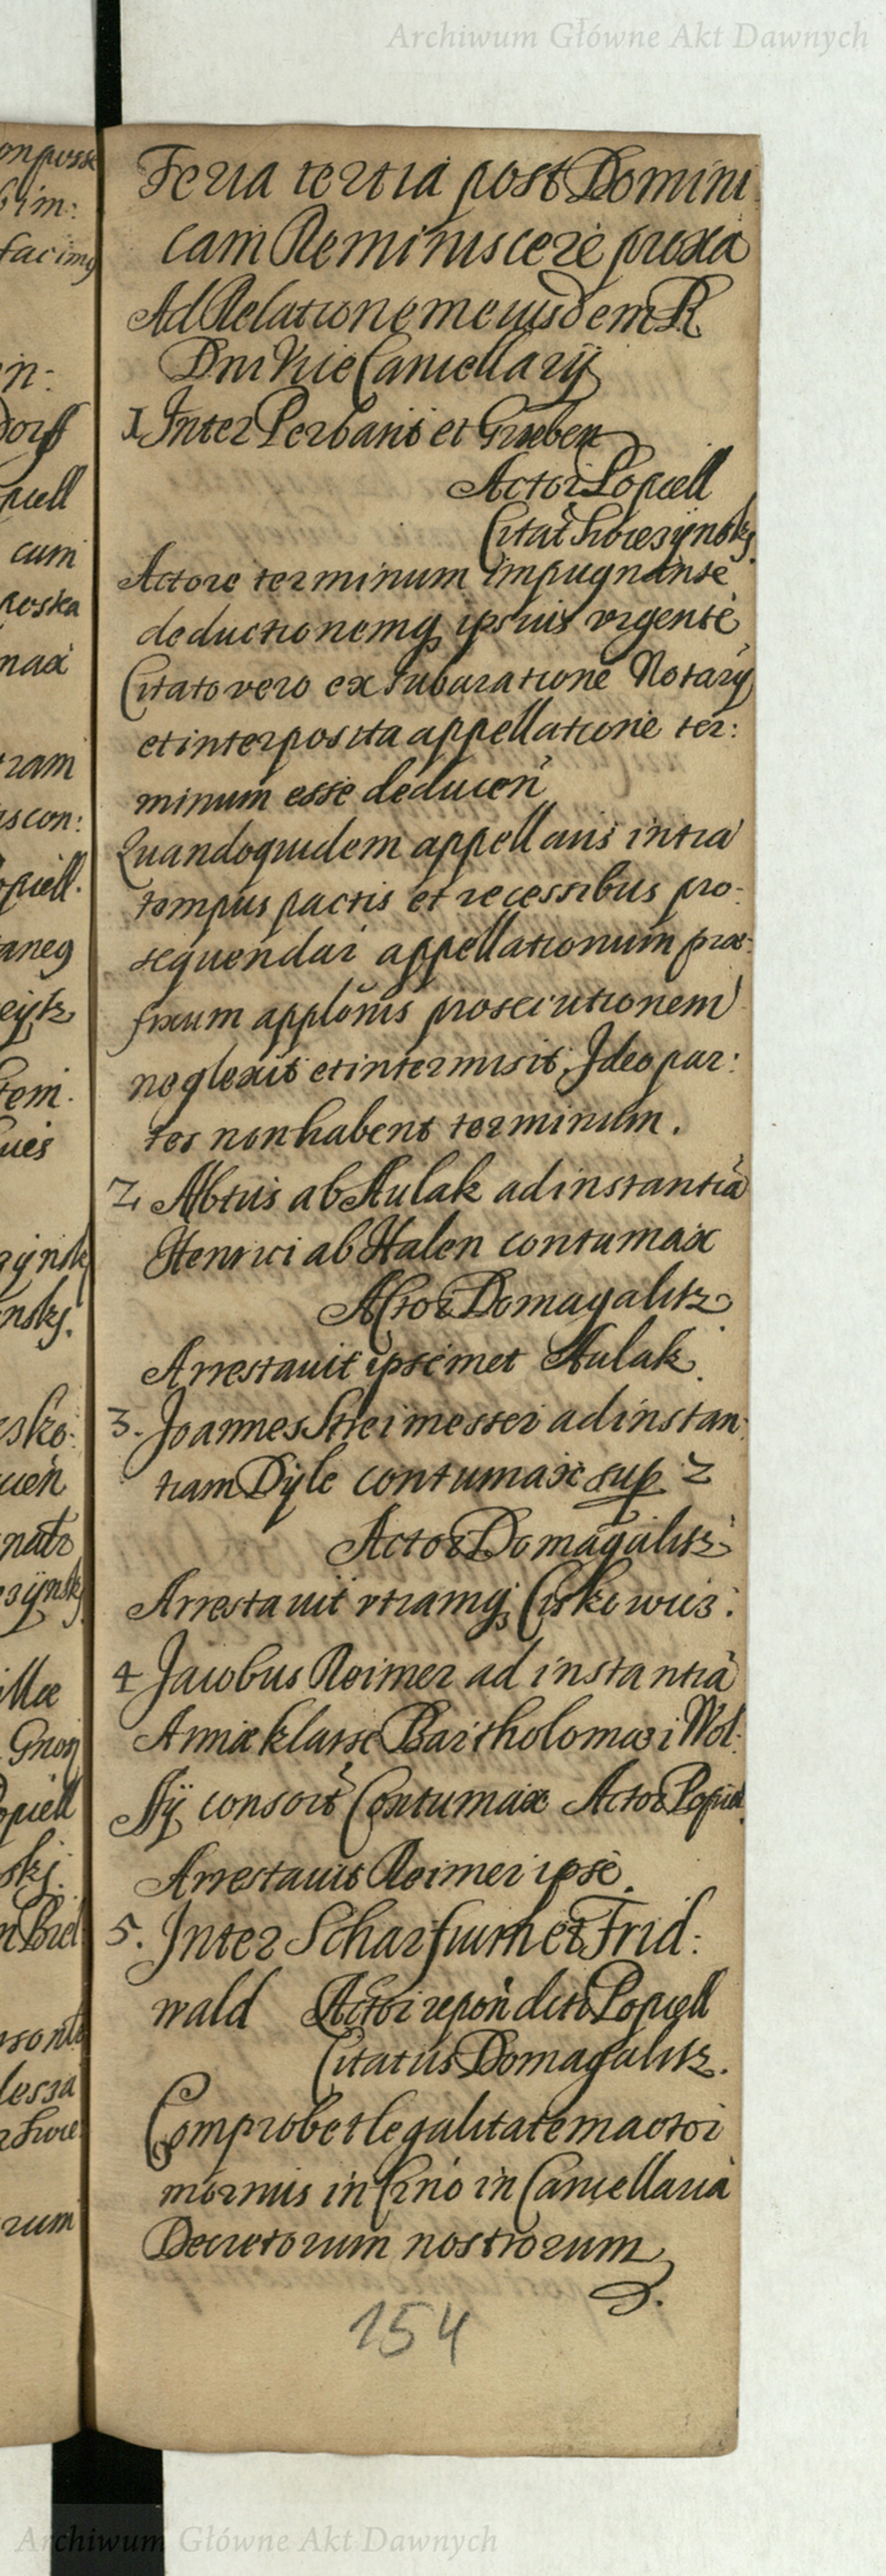 Archiwum Główne Akt Dawnych
Feria tertia post Domini
cam Reminiscere proxa
Ad Relationem eiusdem R
Dni Vice Cancellarij
1 Inter Perbant et Groeben
Actor Popiell
Citat Swiezynsky
Actore terminum impugnante
deductionemq ipsius vrgente
Citato vero ex Notary
et interposita appellatione ter:
minum esse deducen
Quandoquidem appellans intra
tempus pactis et recessibus pro-
sequendar appellationum prae-
fixum applonis prosecutionem
neglexit et intermisit, Ideo par:
tes non habent terminum.
2 Abtus ab Aulak ad instantia
Henrici ab Halen contumax
Actor Domagalitz
Arrestauit ipsemet Aulak.
3. Joannes Streimesser ad instan:
tiam Dyle contumax sup 2
Actor Domagalitz
Arrestauit vtramq Ciskowicz.
4 Jacobus Reimer ad instantia
Annae klasse Bartholomaei Wol:
ffÿ consort Contumax Actor Popiel
Arrestauit Reimer ipse.
5. Inter Scharfium et Frid:
wald Actor repon dicto Popiell
Citatus Domagalitz.
Comprobet legalitatem actor
in Crino in Cancellaria
Decretorum nostrorum
154
onposse
bim:
facimq
in:
dorff
piell
cum
poska
max
ram
scon:
opiell.
aneq
eytz
tem.
ynsk
nsky.
esko:
uen
natr
zÿnsk
illae
Gnoy
opiell
skj.
n Biel
sont
lessa
rum
Archiwum Główne Akt Dawnych